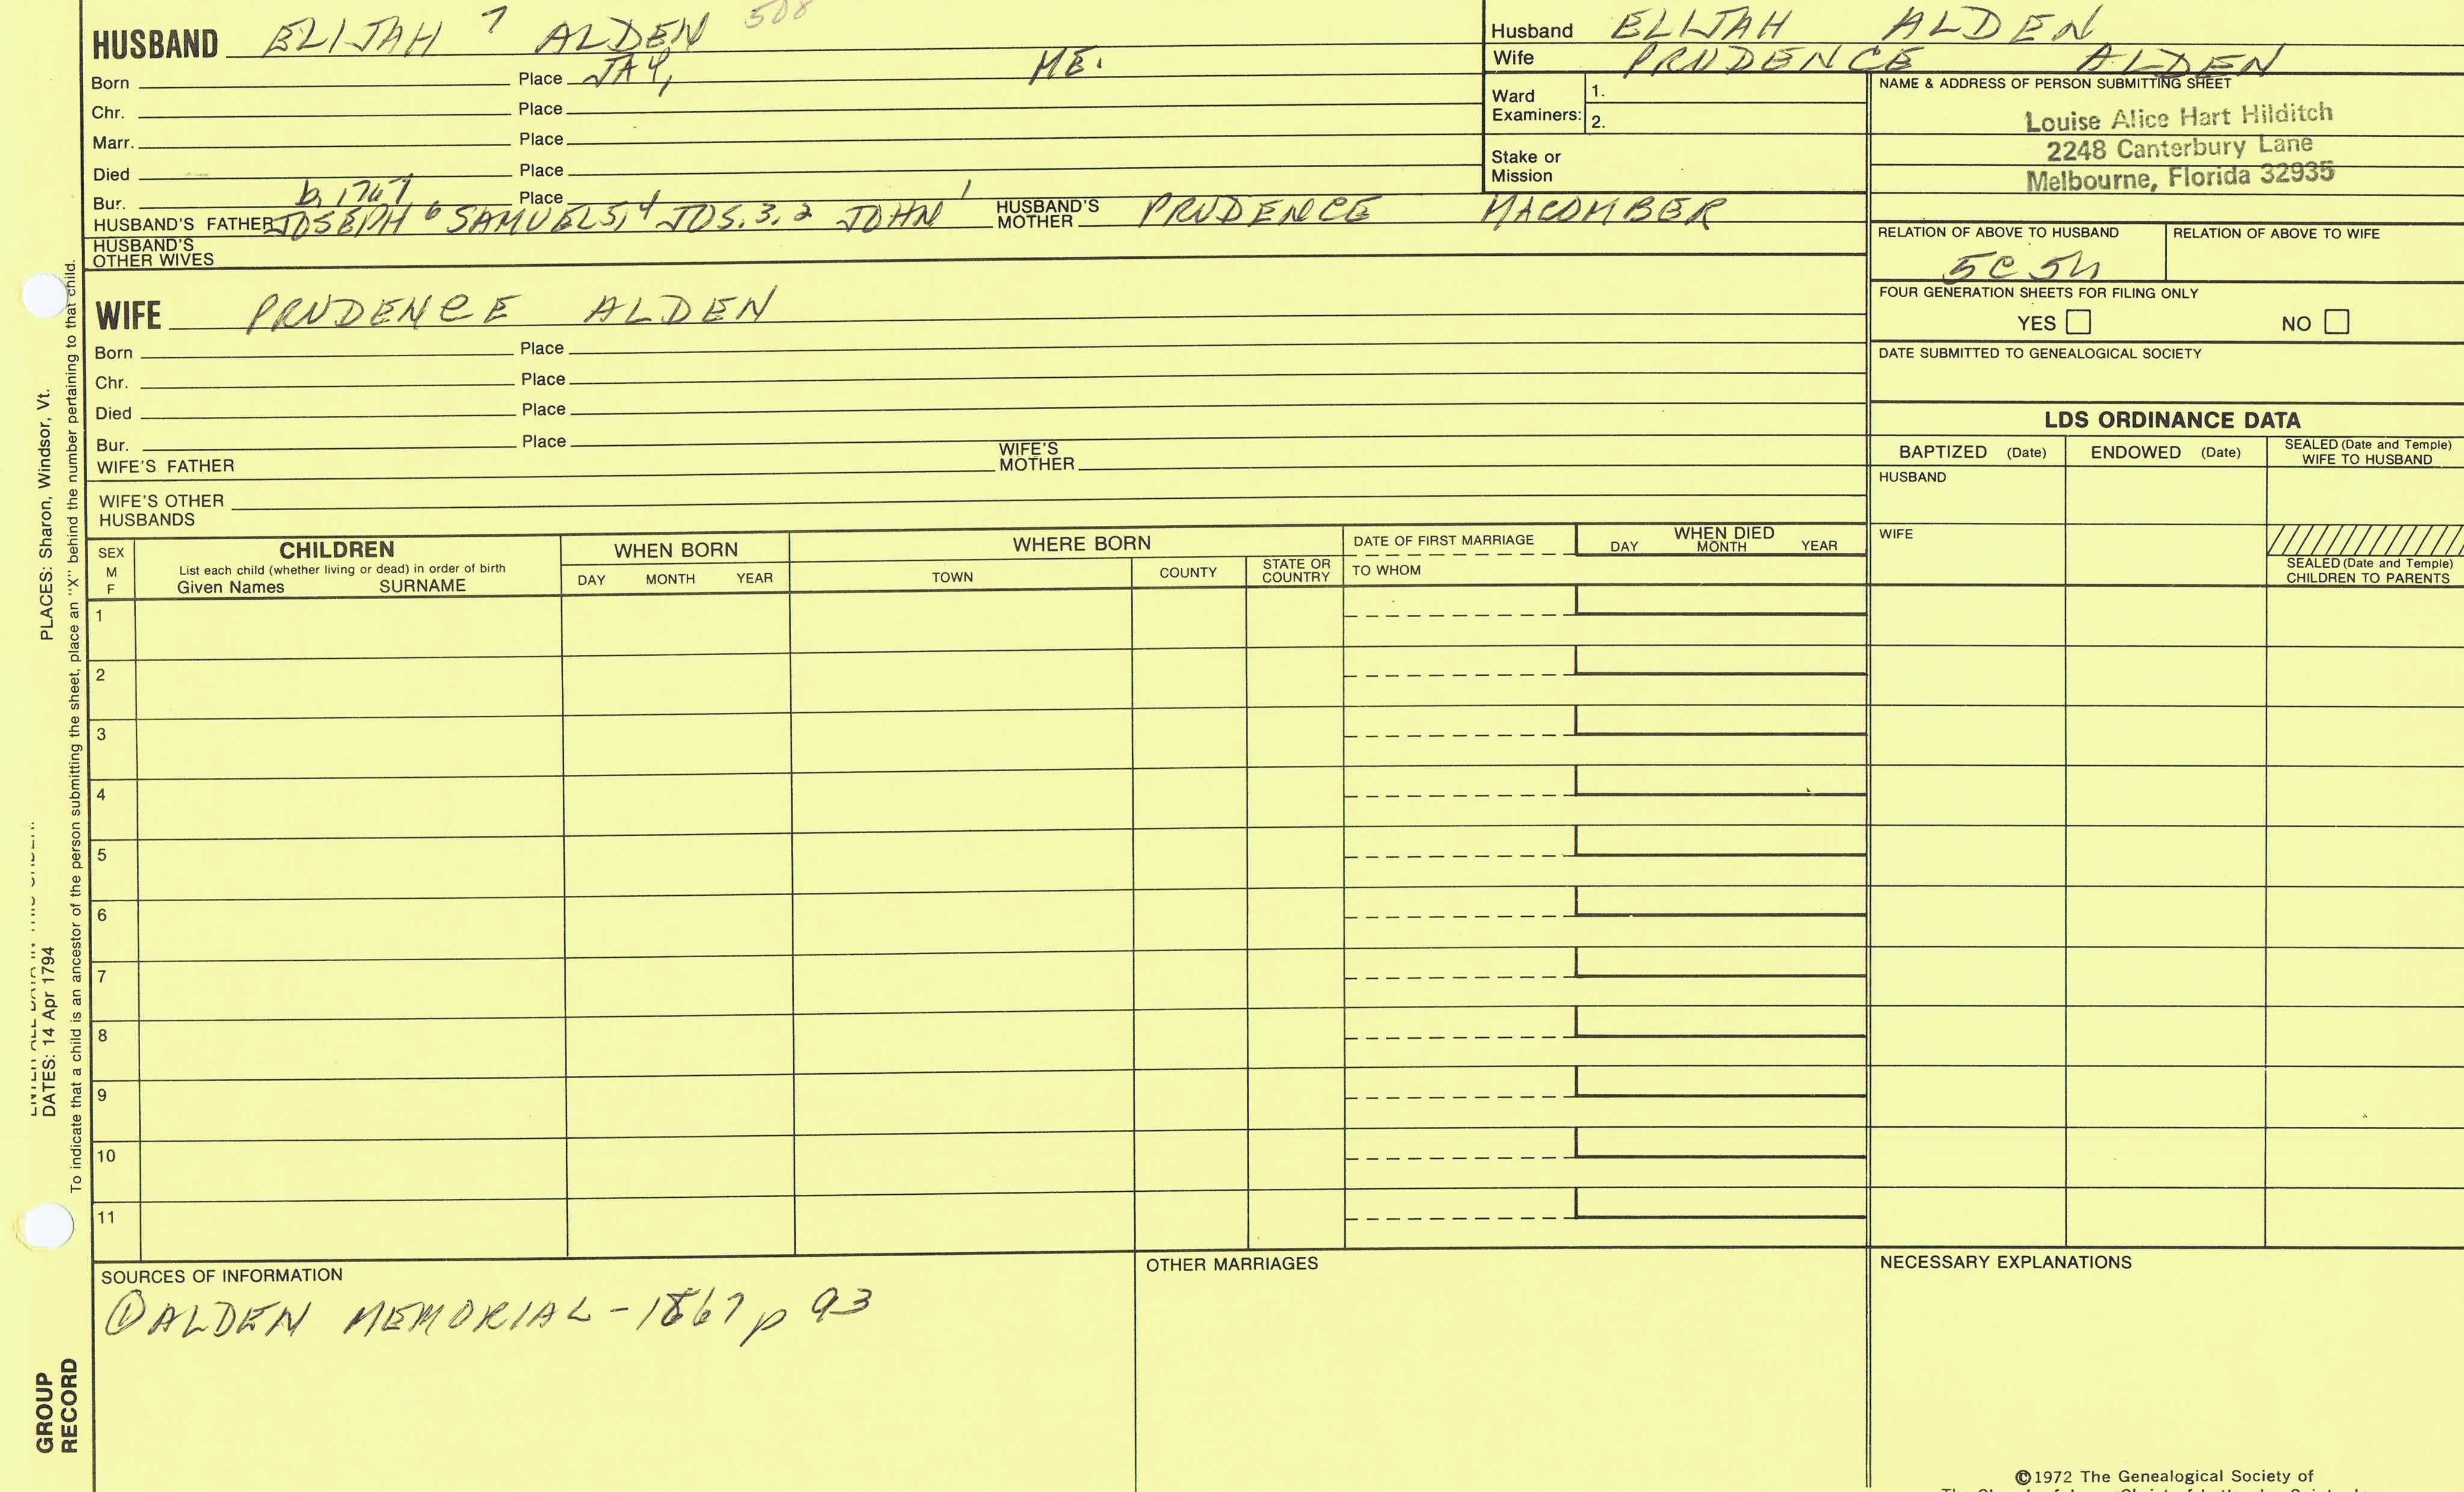 HUSBAND ELIJAH 7 ALDEN 508
Born Place JAY, ME.
Chr. Place
Marr. Place
Died Place
Bur. b. 1767 Place
HUSBAND'S FATHER JOSEPH 6 SAMUEL 5,4 JOS. 3,2 JOHN 1 HUSBAND'S MOTHER PRUDENCE MACOMBER
HUSBAND'S OTHER WIVES
Husband ELIJAH ALDEN
Wife PRUDENCE ALDEN
Ward Examiners: 1.
2.
Stake or Mission
NAME & ADDRESS OF PERSON SUBMITTING SHEET
Louise Alice Hart Hilditch
2248 Canterbury Lane
Melbourne, Florida 32935
RELATION OF ABOVE TO HUSBAND RELATION OF ABOVE TO WIFE
5C 5
FOUR GENERATION SHEETS FOR FILING ONLY
YES NO
DATE SUBMITTED TO GENEALOGICAL SOCIETY
WIFE PRUDENCE ALDEN
Born Place
Chr. Place
Died Place
Bur. Place
WIFE'S FATHER WIFE'S MOTHER
WIFE'S OTHER HUSBANDS
LDS ORDINANCE DATA
BAPTIZED (Date) ENDOWED (Date) SEALED (Date and Temple) WIFE TO HUSBAND
HUSBAND
WIFE
SEALED (Date and Temple) CHILDREN TO PARENTS
SEX M F
CHILDREN
List each child (whether living or dead) in order of birth
Given Names SURNAME
WHEN BORN
DAY MONTH YEAR
WHERE BORN
TOWN COUNTY STATE OR COUNTRY
DATE OF FIRST MARRIAGE
TO WHOM
WHEN DIED
DAY MONTH YEAR
1
2
3
4
5
6
7
8
9
10
11
SOURCES OF INFORMATION
① ALDEN MEMORIAL - 1867 p 93
OTHER MARRIAGES
NECESSARY EXPLANATIONS
©1972 The Genealogical Society of
PLACES: Sharon, Windsor, Vt.
DATES: 14 Apr 1794
To indicate that a child is an ancestor of the person submitting the sheet, place an "X" behind the number pertaining to that child.
GROUP RECORD